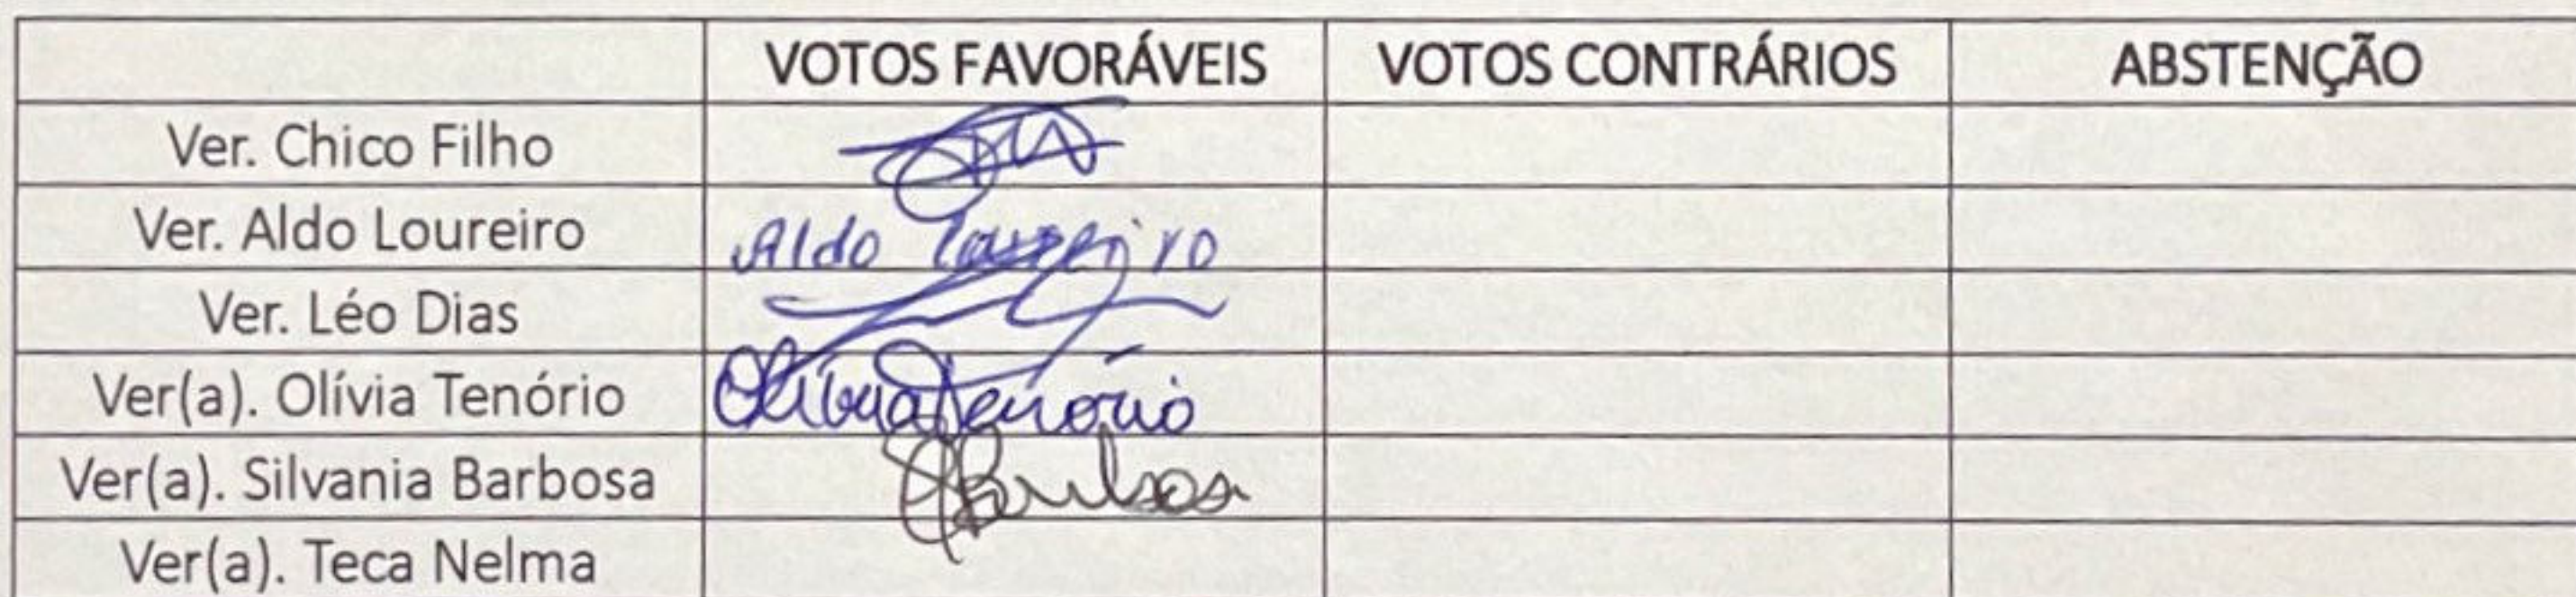 VOTOS FAVORÁVEIS VOTOS CONTRÁRIOS ABSTENÇÃO
Ver. Chico Filho
Ver. Aldo Loureiro Aldo Loureiro
Ver. Léo Dias
Ver(a). Olívia Tenório Olívia Tenório
Ver(a). Silvania Barbosa SBarbosa
Ver(a). Teca Nelma